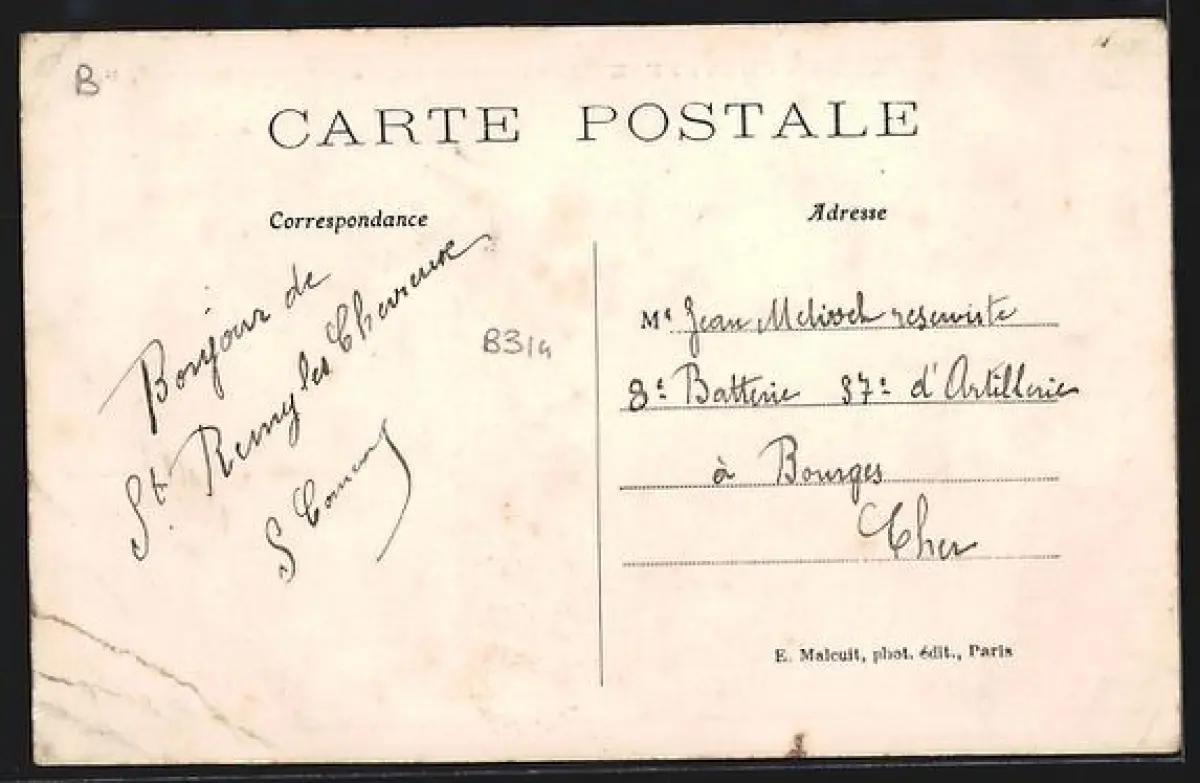 B
CARTE POSTALE
Correspondance
Bonjour de
St. Remy les Chevreuse
S
B314
Adresse
Mr Jean reserviste
8e Batterie 37e d'Artillerie
à Bourges
Cher
E. Malcuit, phot. édit., Paris